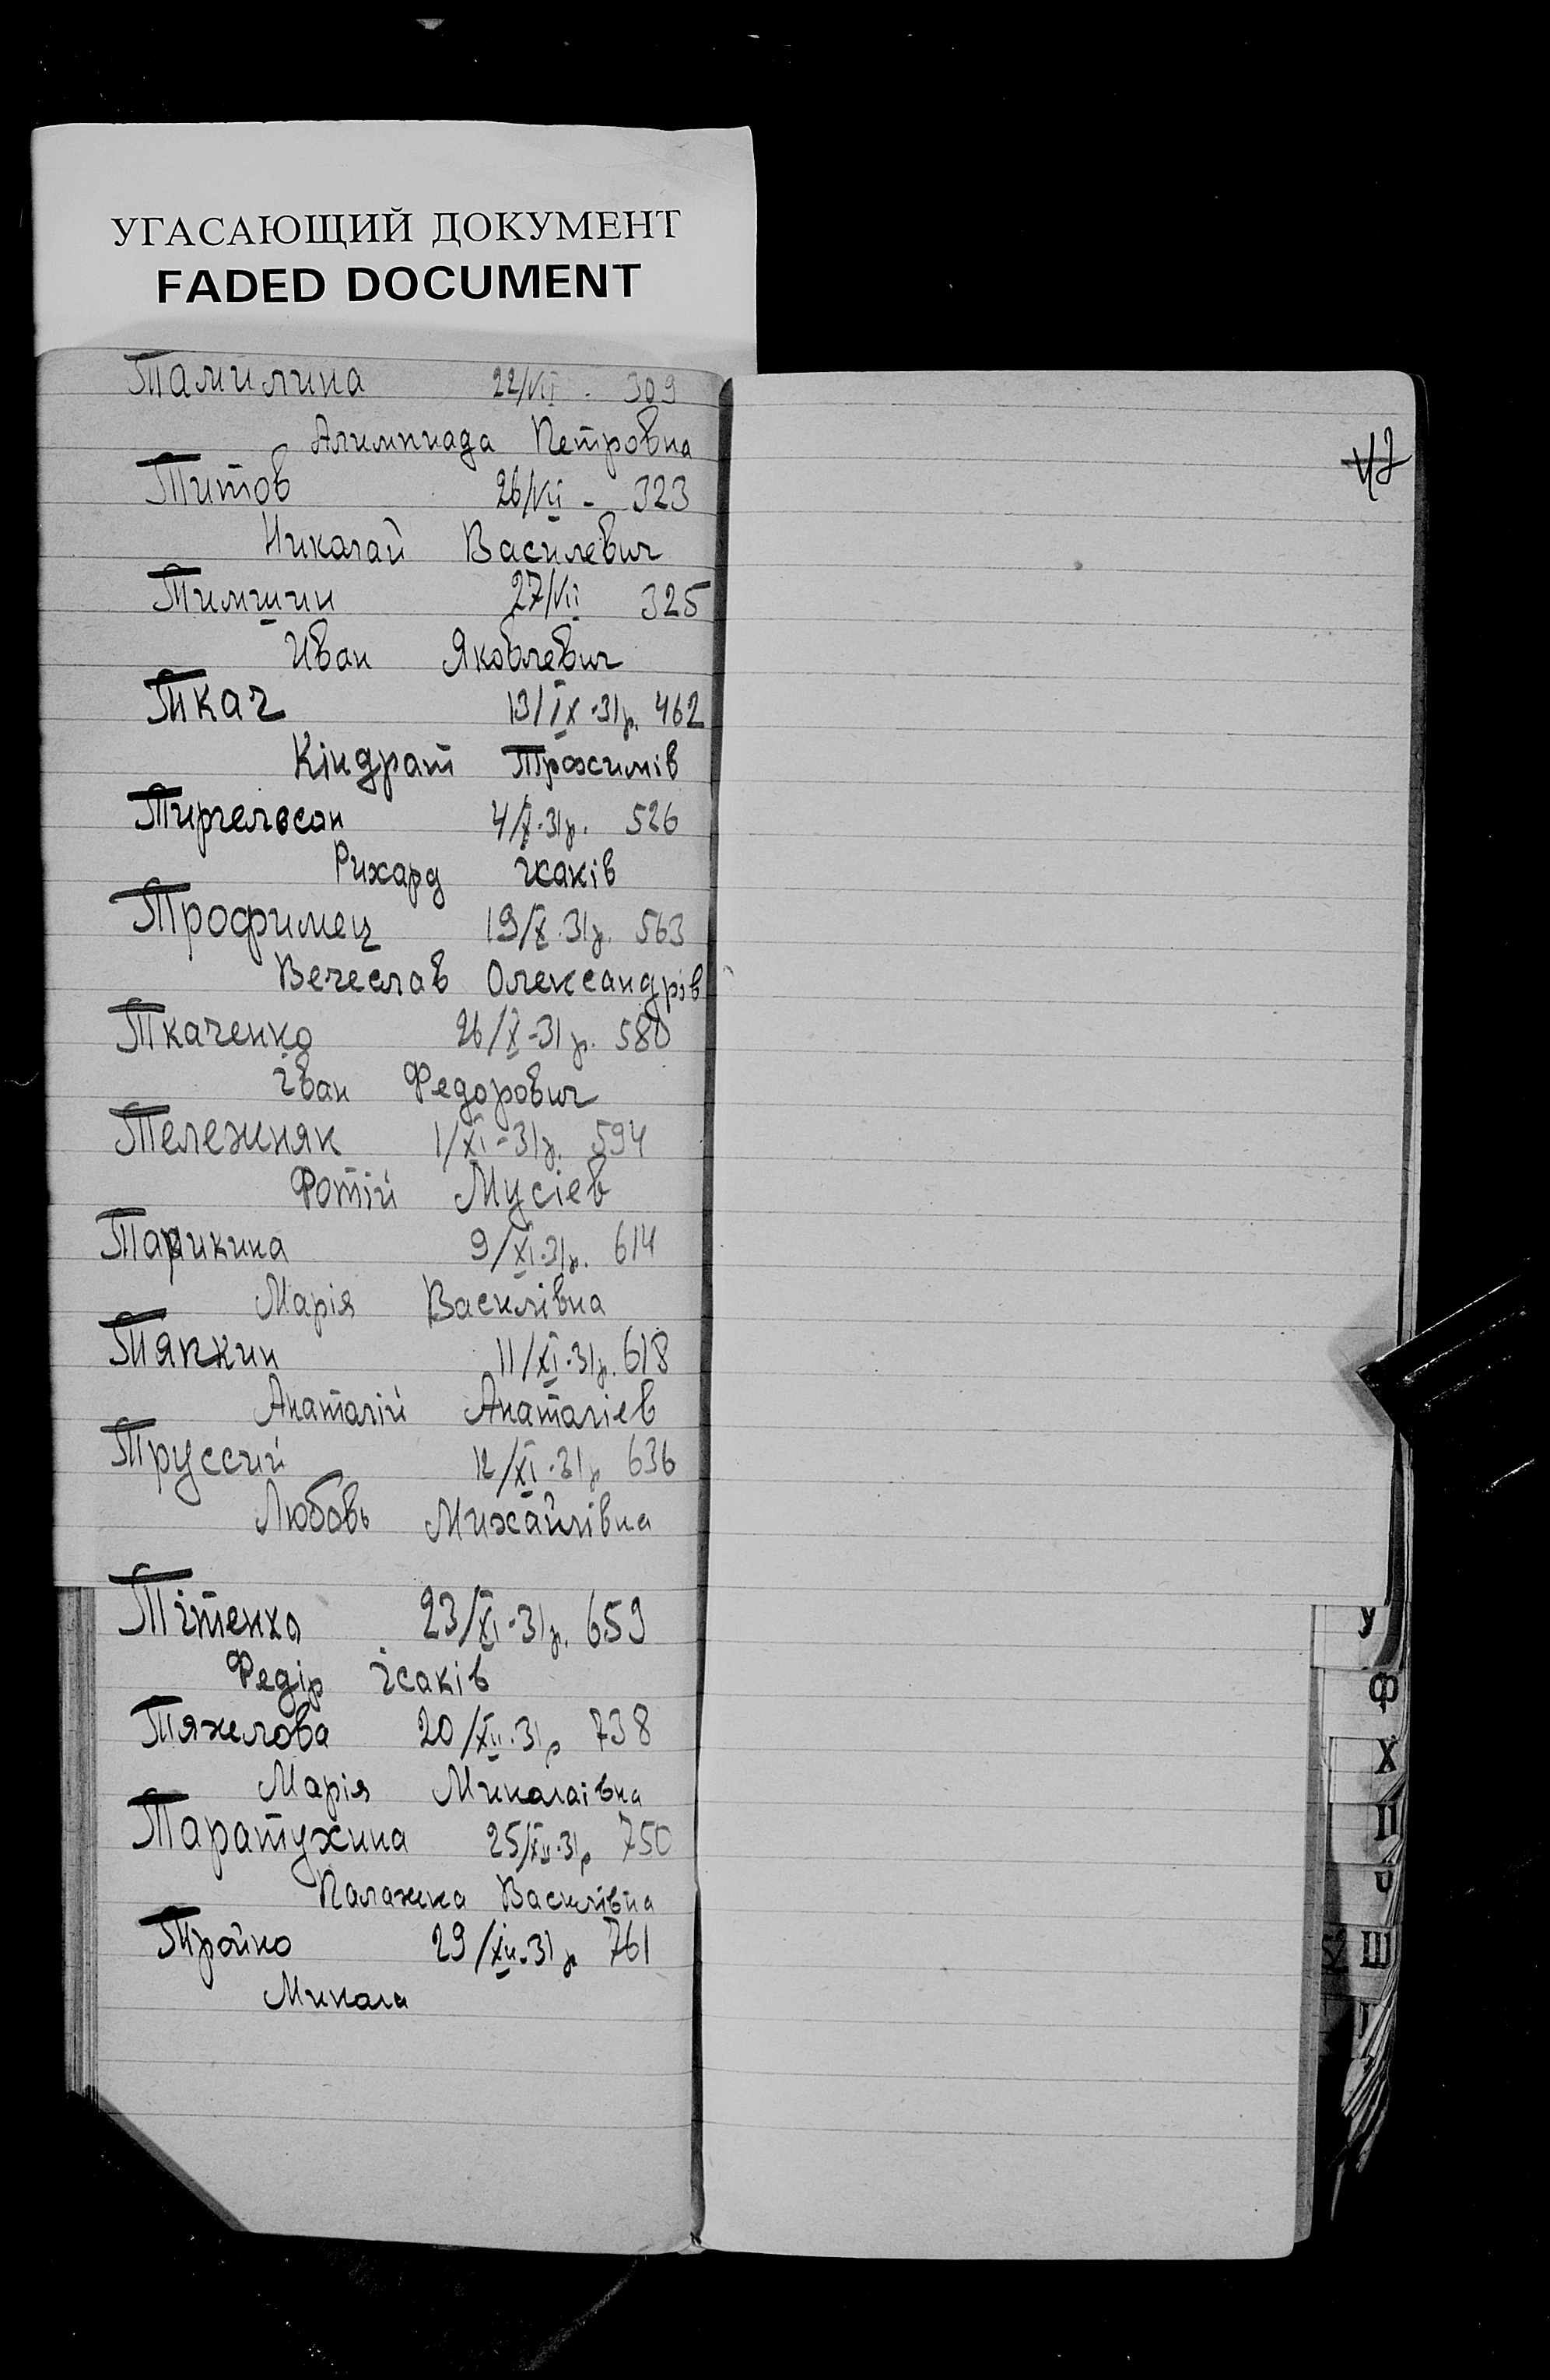 УГАСАЮЩИЙ ДОКУМЕНТ
FADED DOCUMENT
Тамилина 22/VII - 309
Алимпиада Петровна
Титов 26/VII - 323
Николай Василевич
Тимшин 27/VII 325
Иван Яковлевич
Ткач 13/IX-31р. 462
Кіндрат Трохимів
4/X-31р. 526
Рихард Ісаків
Трофимец 19/X-31р. 563
Вечеслав Олександрів
Ткаченко 26/X-31р. 580
Іван Федорович
Тележняк 1/XI-31р. 594
Фотій Мусіев
9/XI-31р. 614
Марія Василівна
Тяпкин 11/XI-31р. 618
Анаталій Анаталіев
12/XI-31р 636
Любовь Михайлівна
Тітенко 23/XI-31р. 659
Федір Ісаків
Тяжелова 20/XII-31р 738
Марія Миколаівна
Таратухина 25/XII-31р 750
Палажка Василівна
Тройко 29/XII-31р 761
Микола
У
Ф
Х
Ц
Ч
Ш